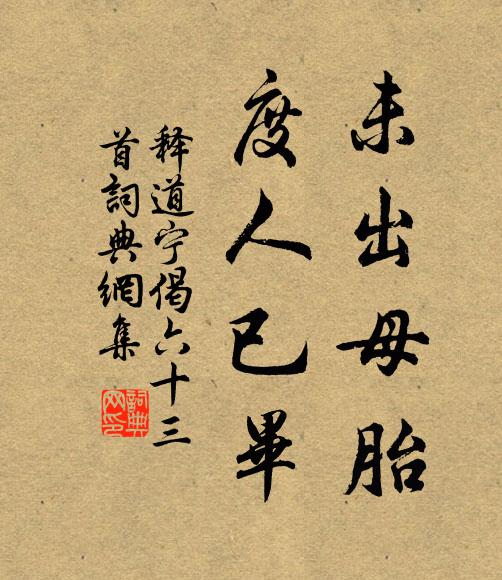 未出母胎
度人已畢
释道宁偈六十三
首詞典網集
詞典
网印